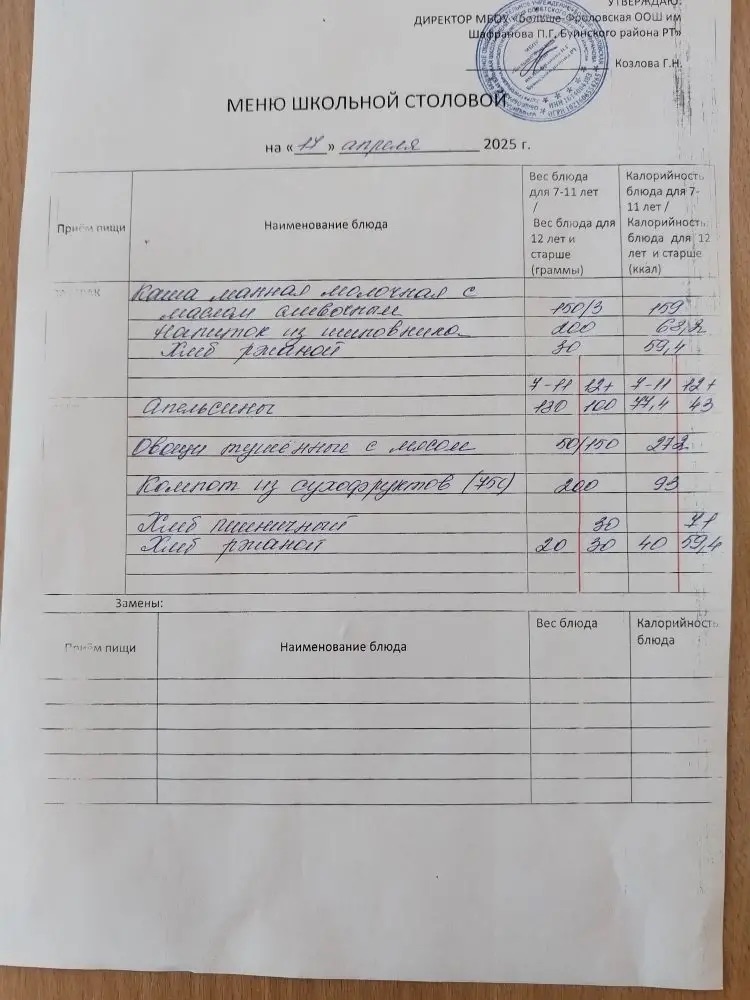 УТВЕРЖДАЮ:
ДИРЕКТОР МБОУ «Больше-Фроловская ООШ им
Шафранова П.Г. Буинского района РТ»
Козлова Г.Н.
МЕНЮ ШКОЛЬНОЙ СТОЛОВОЙ
на «17» апреля 2025 г.
Приём пищи
Наименование блюда
Вес блюда
для 7-11 лет
/
Вес блюда для
12 лет и
старше
(граммы)
Калорийность
блюда для 7-
11 лет /
Калорийность
блюда для 12
лет и старше
(ккал)
Каша манная молочная с
маслом сливочным 150/3 159
Напиток из шиповника 200 68,2
Хлеб ржаной 30 59,4
7-11 12+ 7-11 12+
Апельсины 180 100 77,4 43
Овощи тушённые с мясом 50/150 272
Компот из сухофруктов (75С) 200 93
Хлеб пшеничный 30 71
Хлеб ржаной 20 30 40 59,4
Замены:
Приём пищи
Наименование блюда
Вес блюда
Калорийность
блюда